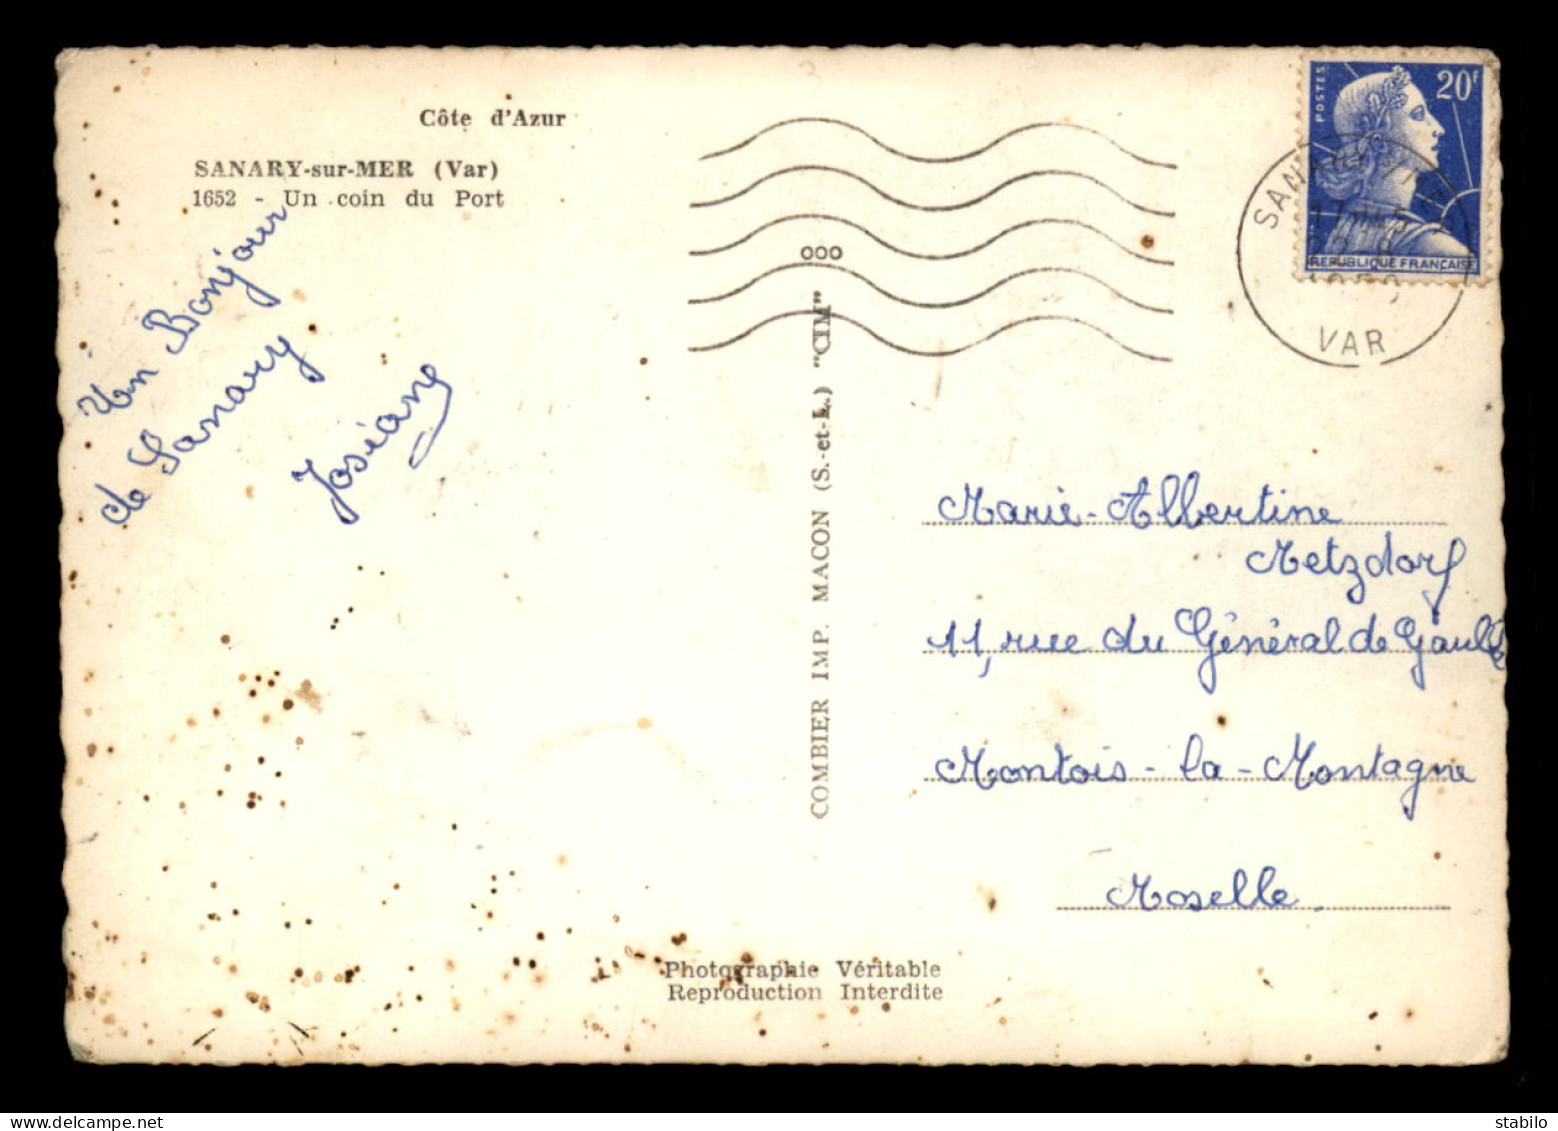 Côte d'Azur
SANARY-sur-MER (Var)
1652 - Un coin du Port
Un Bonjour
de Sanary
Josiane
COMBIER IMP. MACON (S.-et-L.) "CIM"
000
POSTES
20F
REPUBLIQUE FRANÇAISE
VAR
Marie-Albertine
Metzdorf
11, rue du Général de Gaulle
Montois-la-Montagne
Moselle.
Photographie Véritable
Reproduction Interdite
www.delcampe.net
stabilo